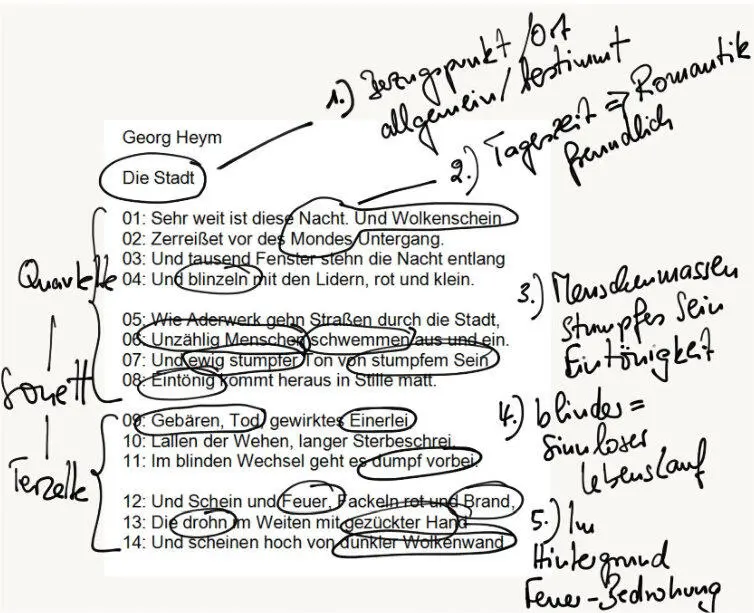 1.) Bezugspunkt/Ort
allgemein/bestimmt
Georg Heym
Die Stadt
2.) Tageszeit => Romantik
freundlich
01: Sehr weit ist diese Nacht. Und Wolkenschein
02: Zerreißet vor des Mondes Untergang.
03: Und tausend Fenster stehn die Nacht entlang
04: Und blinzeln mit den Lidern, rot und klein.
Quartette
05: Wie Aderwerk gehn Straßen durch die Stadt,
06: Unzählig Menschen schwemmen aus und ein.
07: Und ewig stumpfer Ton von stumpfem Sein
08: Eintönig kommt heraus in Stille matt.
3.) Menschenmassen
stumpfes Sein
Eintönigkeit
Sonett
09: Gebären, Tod, gewirktes Einerlei
10: Lallen der Wehen, langer Sterbeschrei.
11: Im blinden Wechsel geht es dumpf vorbei.
4.) blinder =
sinnloser
Lebenslauf
Terzette
12: Und Schein und Feuer, Fackeln rot und Brand,
13: Die drohn im Weiten mit gezückter Hand
14: Und scheinen hoch von dunkler Wolkenwand
5.) Im
Hintergrund
Feuer-Bedrohung